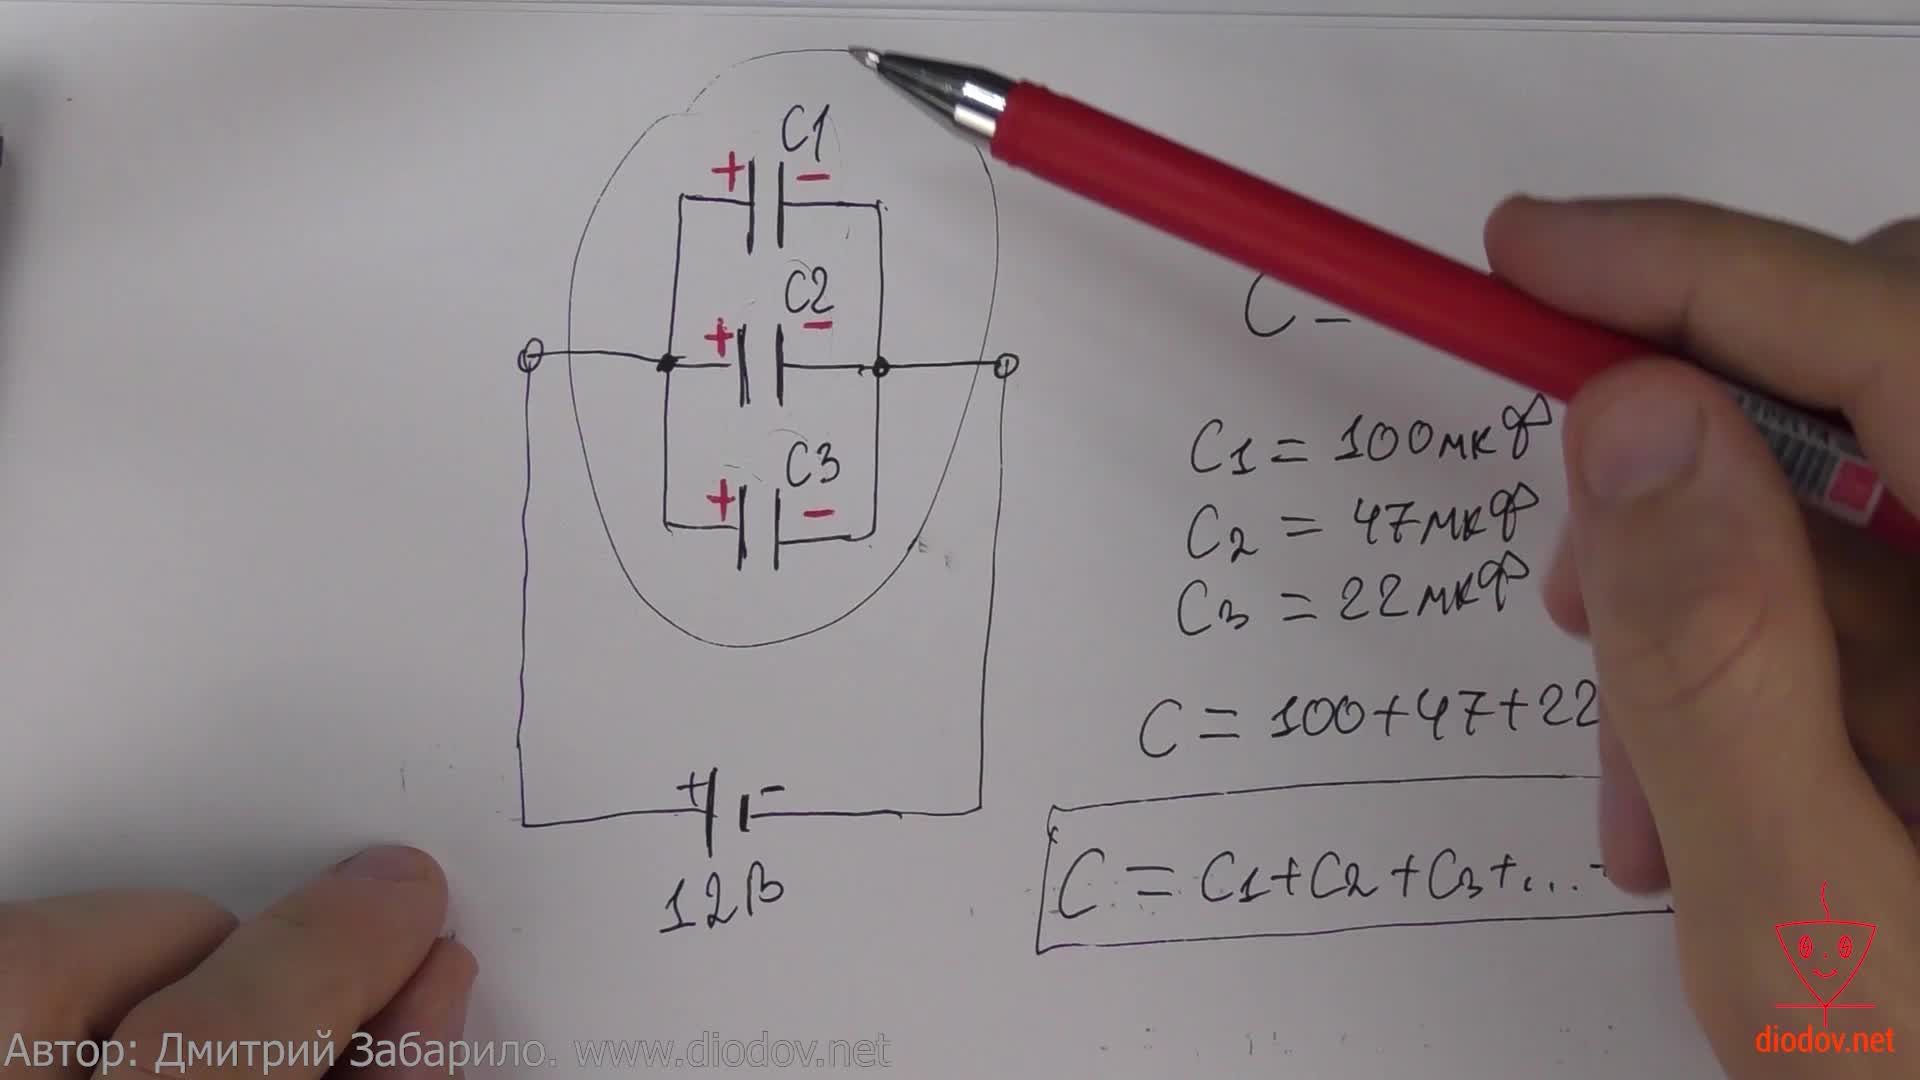 C1
+ −
C2
+ −
C3
+ −
+ -
12В
C =
C1 = 100мкф
C2 = 47мкф
C3 = 22мкф
C = 100+47+22
C = C1+C2+C3+...+
Автор: Дмитрий Забарило. www.diodov.net
diodov.net